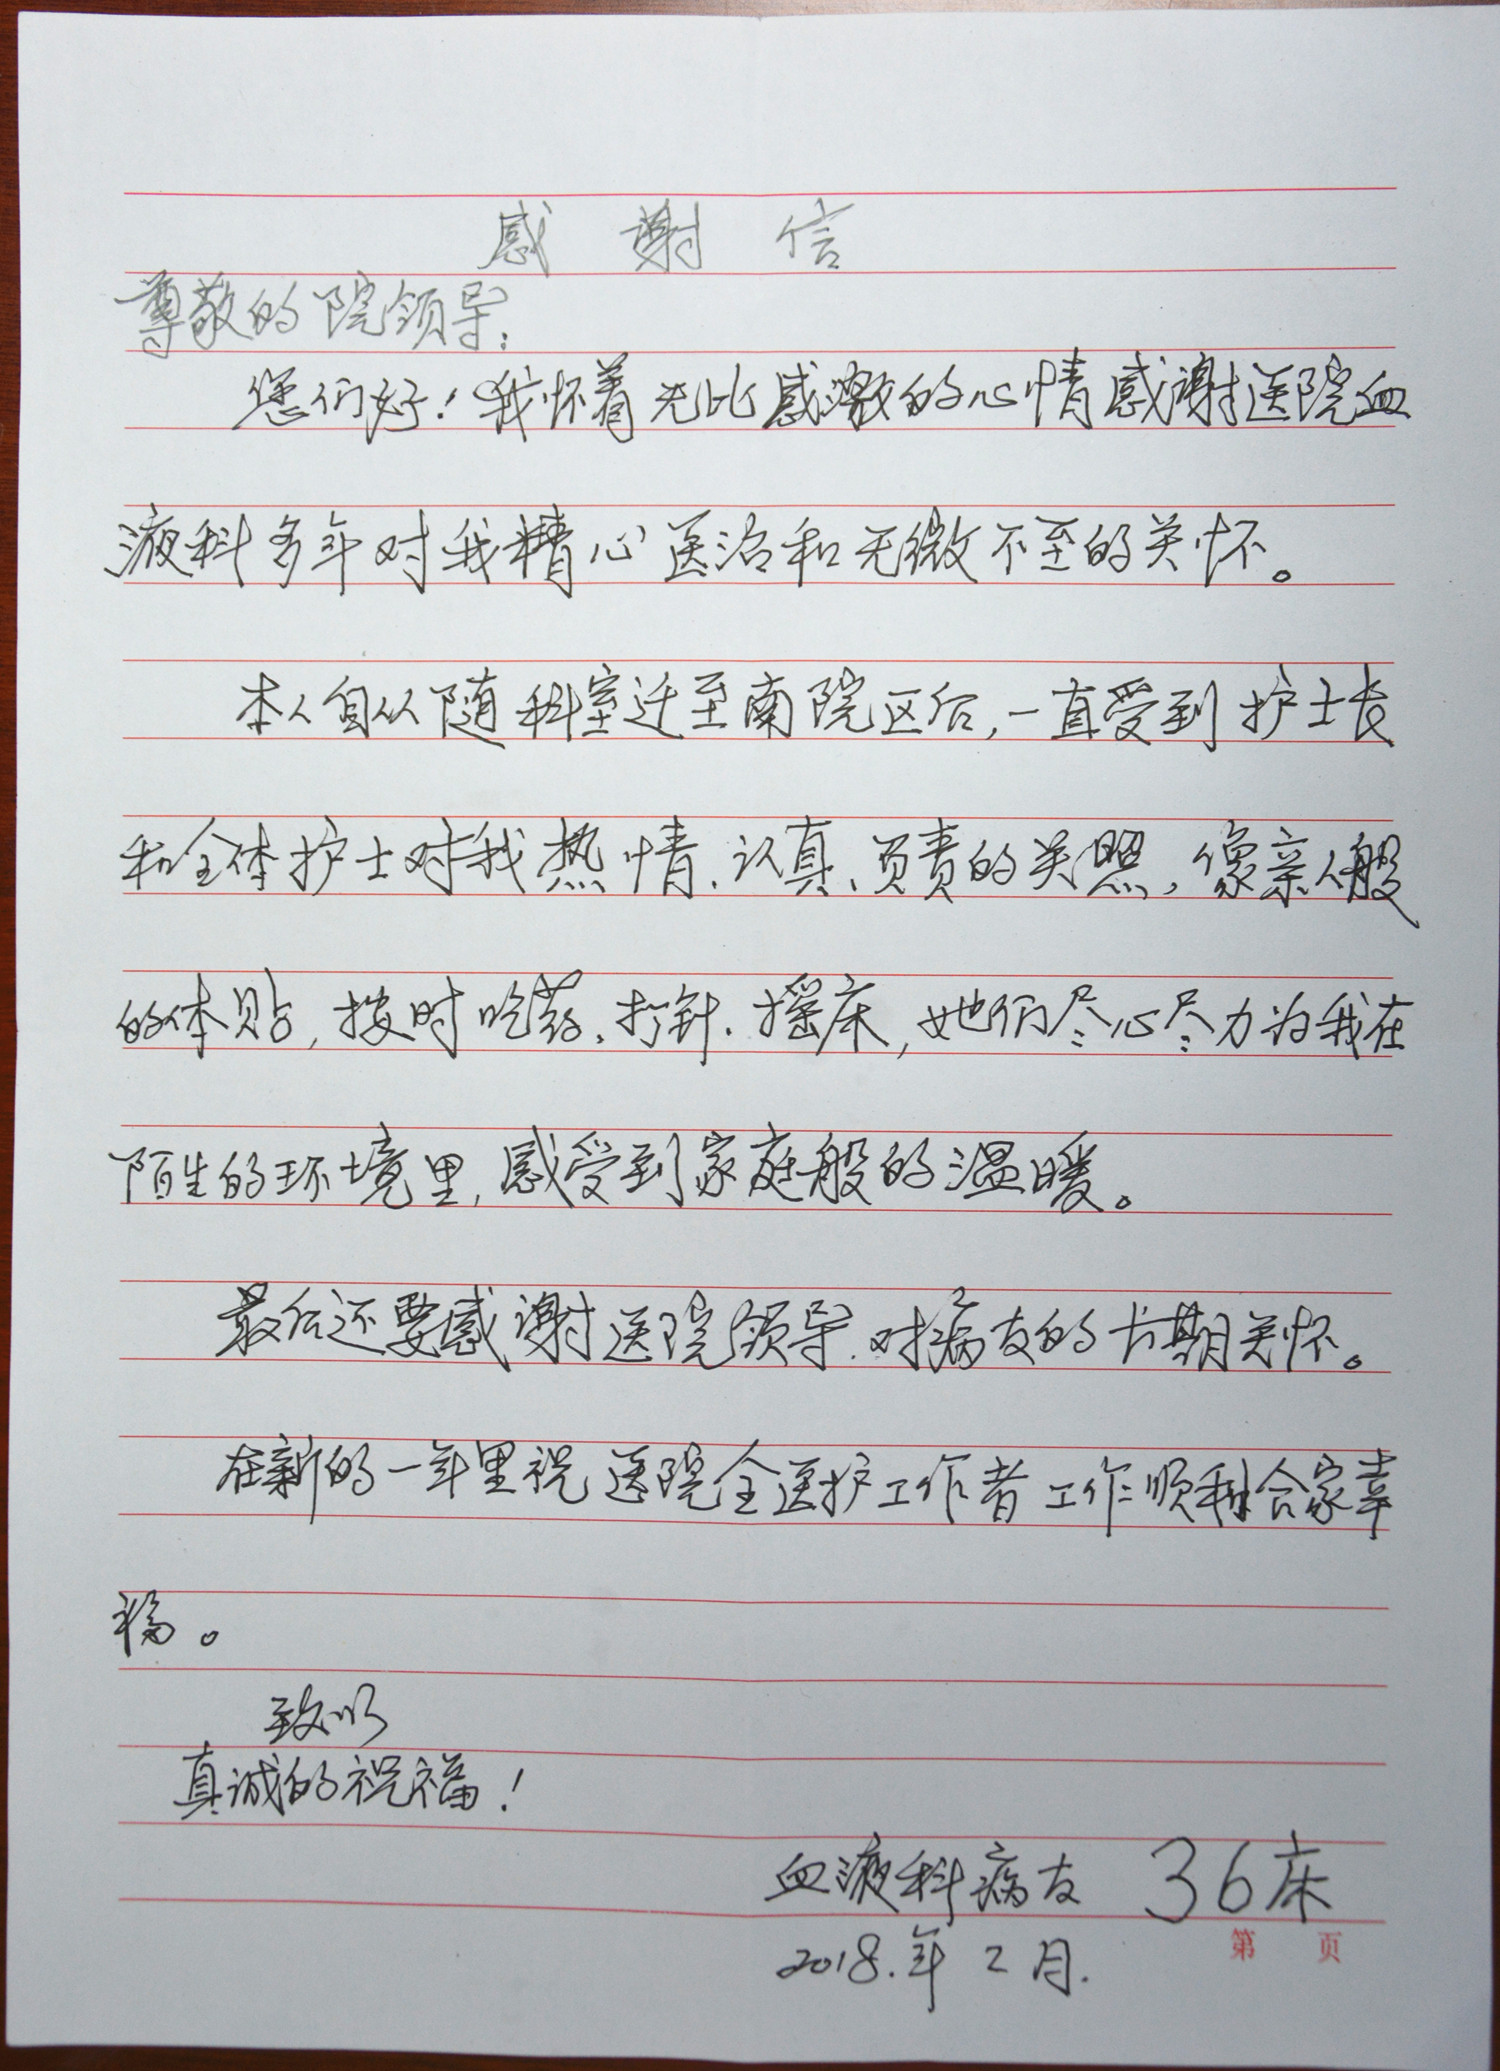 感谢信
尊敬的院领导:
您们好!我怀着无比感激的心情感谢医院血
液科多年对我精心医治和无微不至的关怀。
本人自从随科室迁至南院区后,一直受到护士长
和全体护士对我热情、认真、负责的关照,像亲人般
的体贴,按时吃药、打针、摇床,她们尽心尽力为我在
陌生的环境里,感受到家庭般的温暖。
最后还要感谢医院领导、对病友的长期关怀。
在新的一年里祝医院全医护工作者工作顺利合家幸
福。
致以
真诚的祝福!
血液科病友 36床
2018.年2月.
第 页